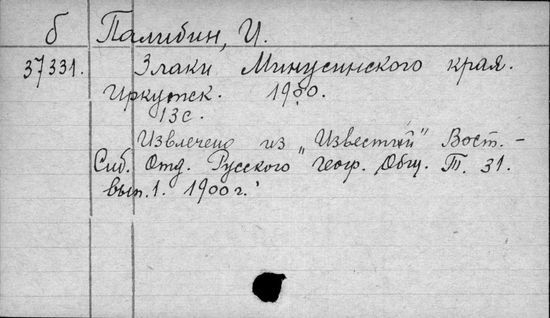 б Палибин, И.
37331. Злаки Минусинского края.
Иркутск. 1900.
13с.
Извлечено из "Известий" Вост.-
Сиб. Отд. Русского геогр. Общ. Т. 31.
вып. 1. 1900 г.